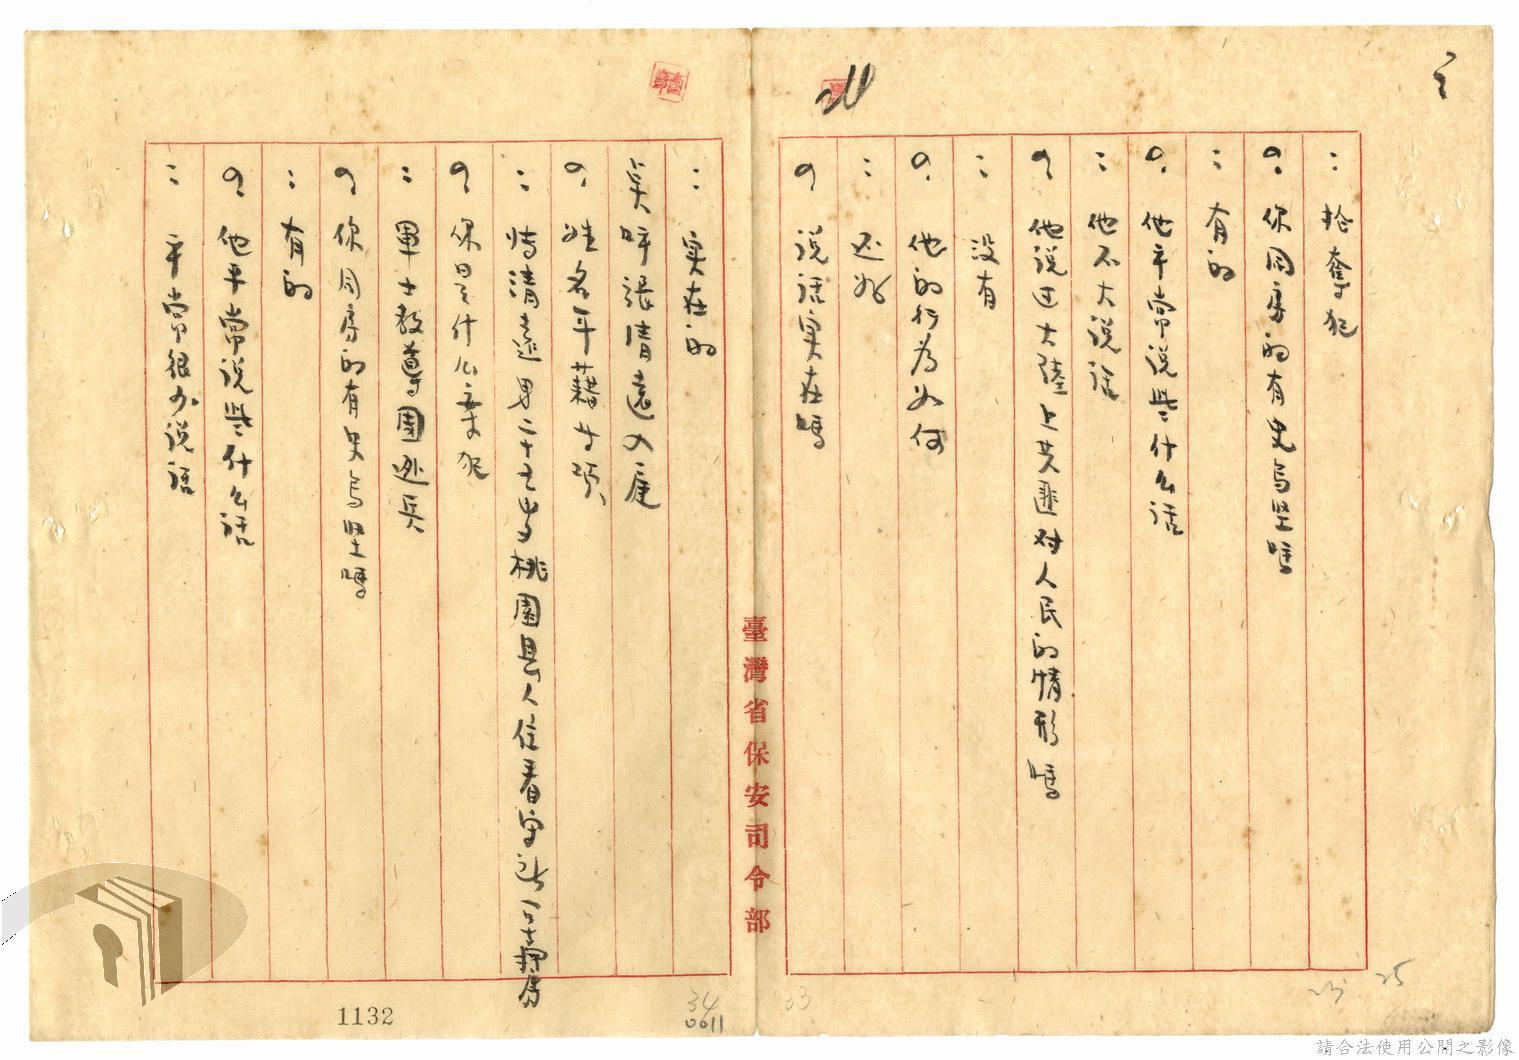 ：搶奪犯
？你同房的有史与堅嗎
：有的
？他平常说些什么话
：他不大说话
？他说过大陸上共匪对人民的情形嗎
：没有
？他的行为如何
：还好
？说话实在嗎
臺灣省保安司令部
：实在的
点呼張清遠入庭
？姓名年藉等項
清遠男二十五岁桃園县人住看守所
？你是什么案犯
：軍士教導團逃兵
？你同房的有史与堅嗎
：有的
？他平常说些什么话
：平常很少说话
1132
33
34
0011
25
請合法使用公開之影像